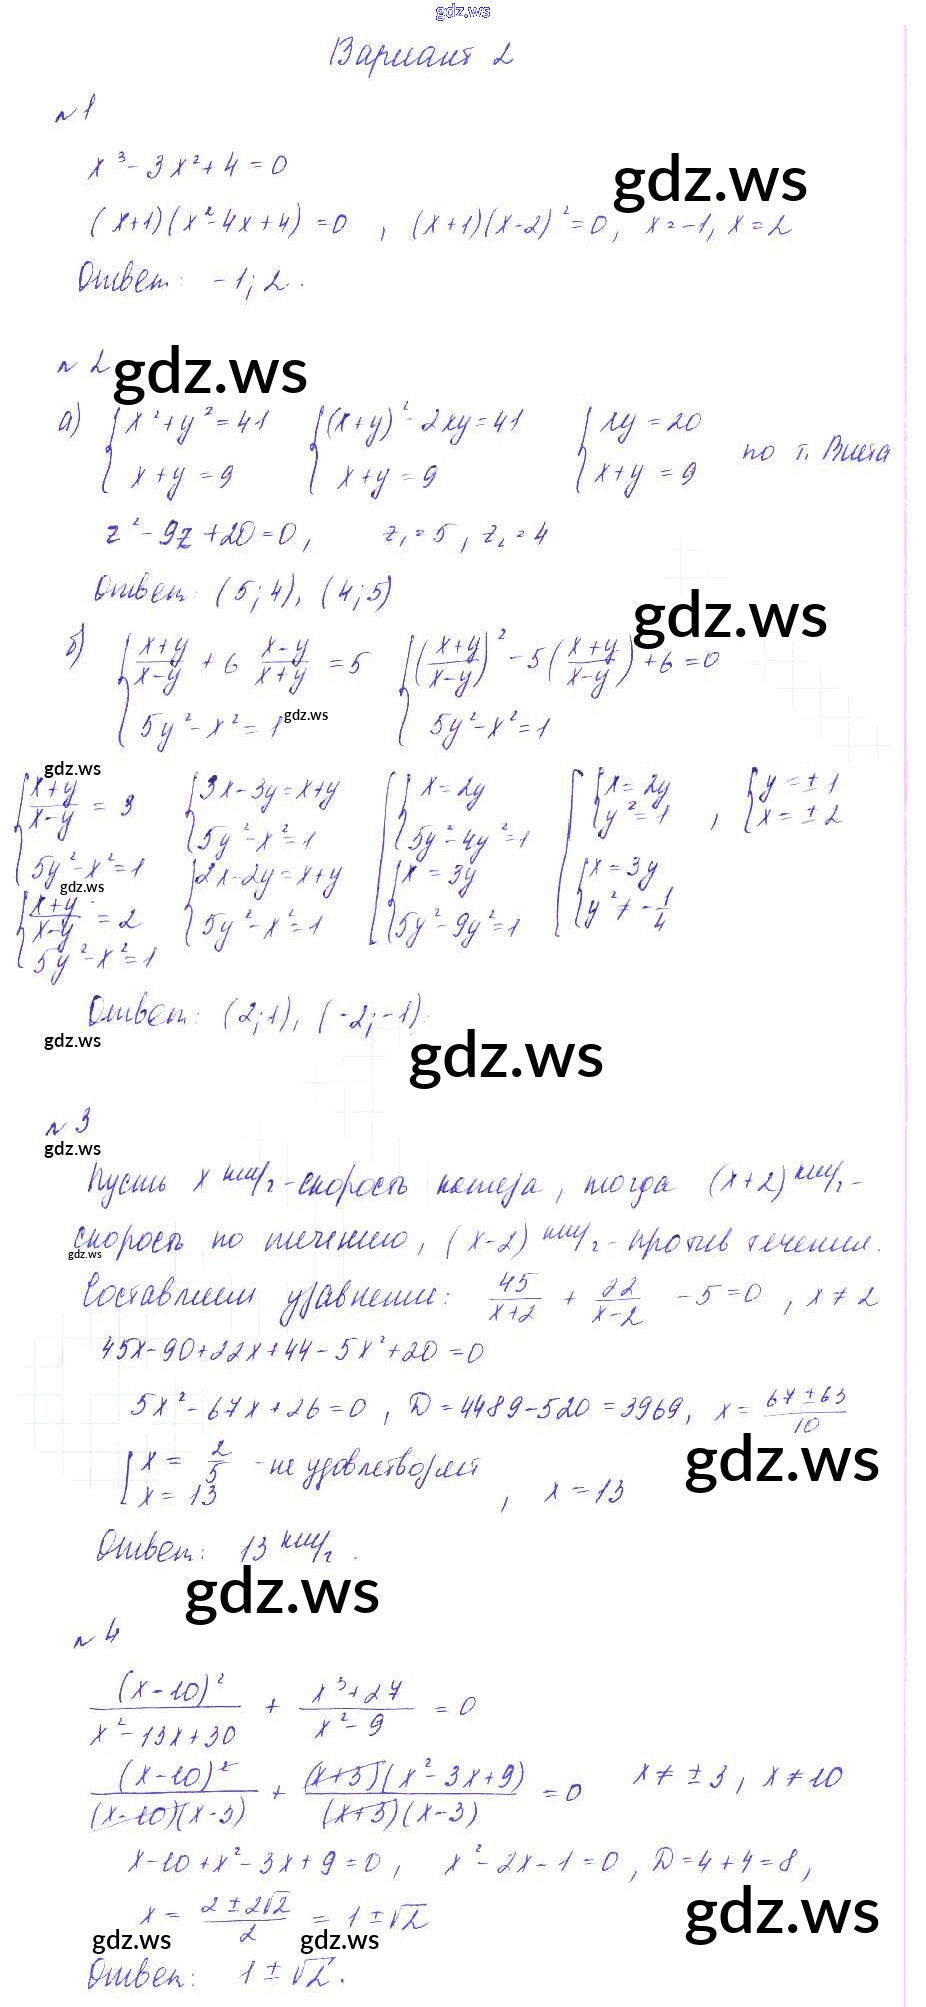 gdz.ws
Вариант 2
№ 1
x³ - 3x² + 4 = 0
gdz.ws
(x+1)(x² - 4x + 4) = 0 , (x+1)(x-2)² = 0, x = -1, x = 2
Ответ: -1; 2.
№ 2
gdz.ws
а) { x² + y² = 41 { (x+y)² - 2xy = 41 { xy = 20
x + y = 9 x + y = 9 x + y = 9 по т. Виета
z² - 9z + 20 = 0, z₁ = 5, z₂ = 4
Ответ: (5; 4), (4; 5)
gdz.ws
б) { (x+y)/(x-y) + 6 (x-y)/(x+y) = 5 { ((x+y)/(x-y))² - 5((x+y)/(x-y)) + 6 = 0
5y² - x² = 1 5y² - x² = 1
gdz.ws
gdz.ws
{ (x+y)/(x-y) = 3 { 3x - 3y = x + y [ { x = 2y [ { x = 2y , { y = ± 1
5y² - x² = 1 5y² - x² = 1 5y² - 4y² = 1 y² = 1 x = ± 2
gdz.ws
{ (x+y)/(x-y) = 2 { 2x - 2y = x + y { x = 3y { x = 3y
5y² - x² = 1 5y² - x² = 1 5y² - 9y² = 1 y² ≠ - 1/4
Ответ: (2; 1), (-2; -1).
gdz.ws
gdz.ws
№ 3
gdz.ws
Пусть x км/г - скорость катера, тогда (x+2) км/г -
скорость по течению, (x-2) км/г - против течения.
gdz.ws
Составляем уравнение: 45/(x+2) + 22/(x-2) - 5 = 0 , x ≠ 2
45x - 90 + 22x + 44 - 5x² + 20 = 0
5x² - 67x + 26 = 0 , D = 4489 - 520 = 3969, x = (67 ± 63)/10
gdz.ws
[ x = 2/5 - не удовлетворяет
x = 13 , x = 13
Ответ: 13 км/г.
gdz.ws
№ 4
(x-10)²/(x² - 13x + 30) + (x³ + 27)/(x² - 9) = 0
(x-10)²/((x-10)(x-3)) + (x+3)(x² - 3x + 9)/((x+3)(x-3)) = 0 x ≠ ± 3, x ≠ 10
x - 10 + x² - 3x + 9 = 0 , x² - 2x - 1 = 0, D = 4 + 4 = 8,
gdz.ws
x = (2 ± 2√2)/2 = 1 ± √2
gdz.ws gdz.ws
Ответ: 1 ± √2.